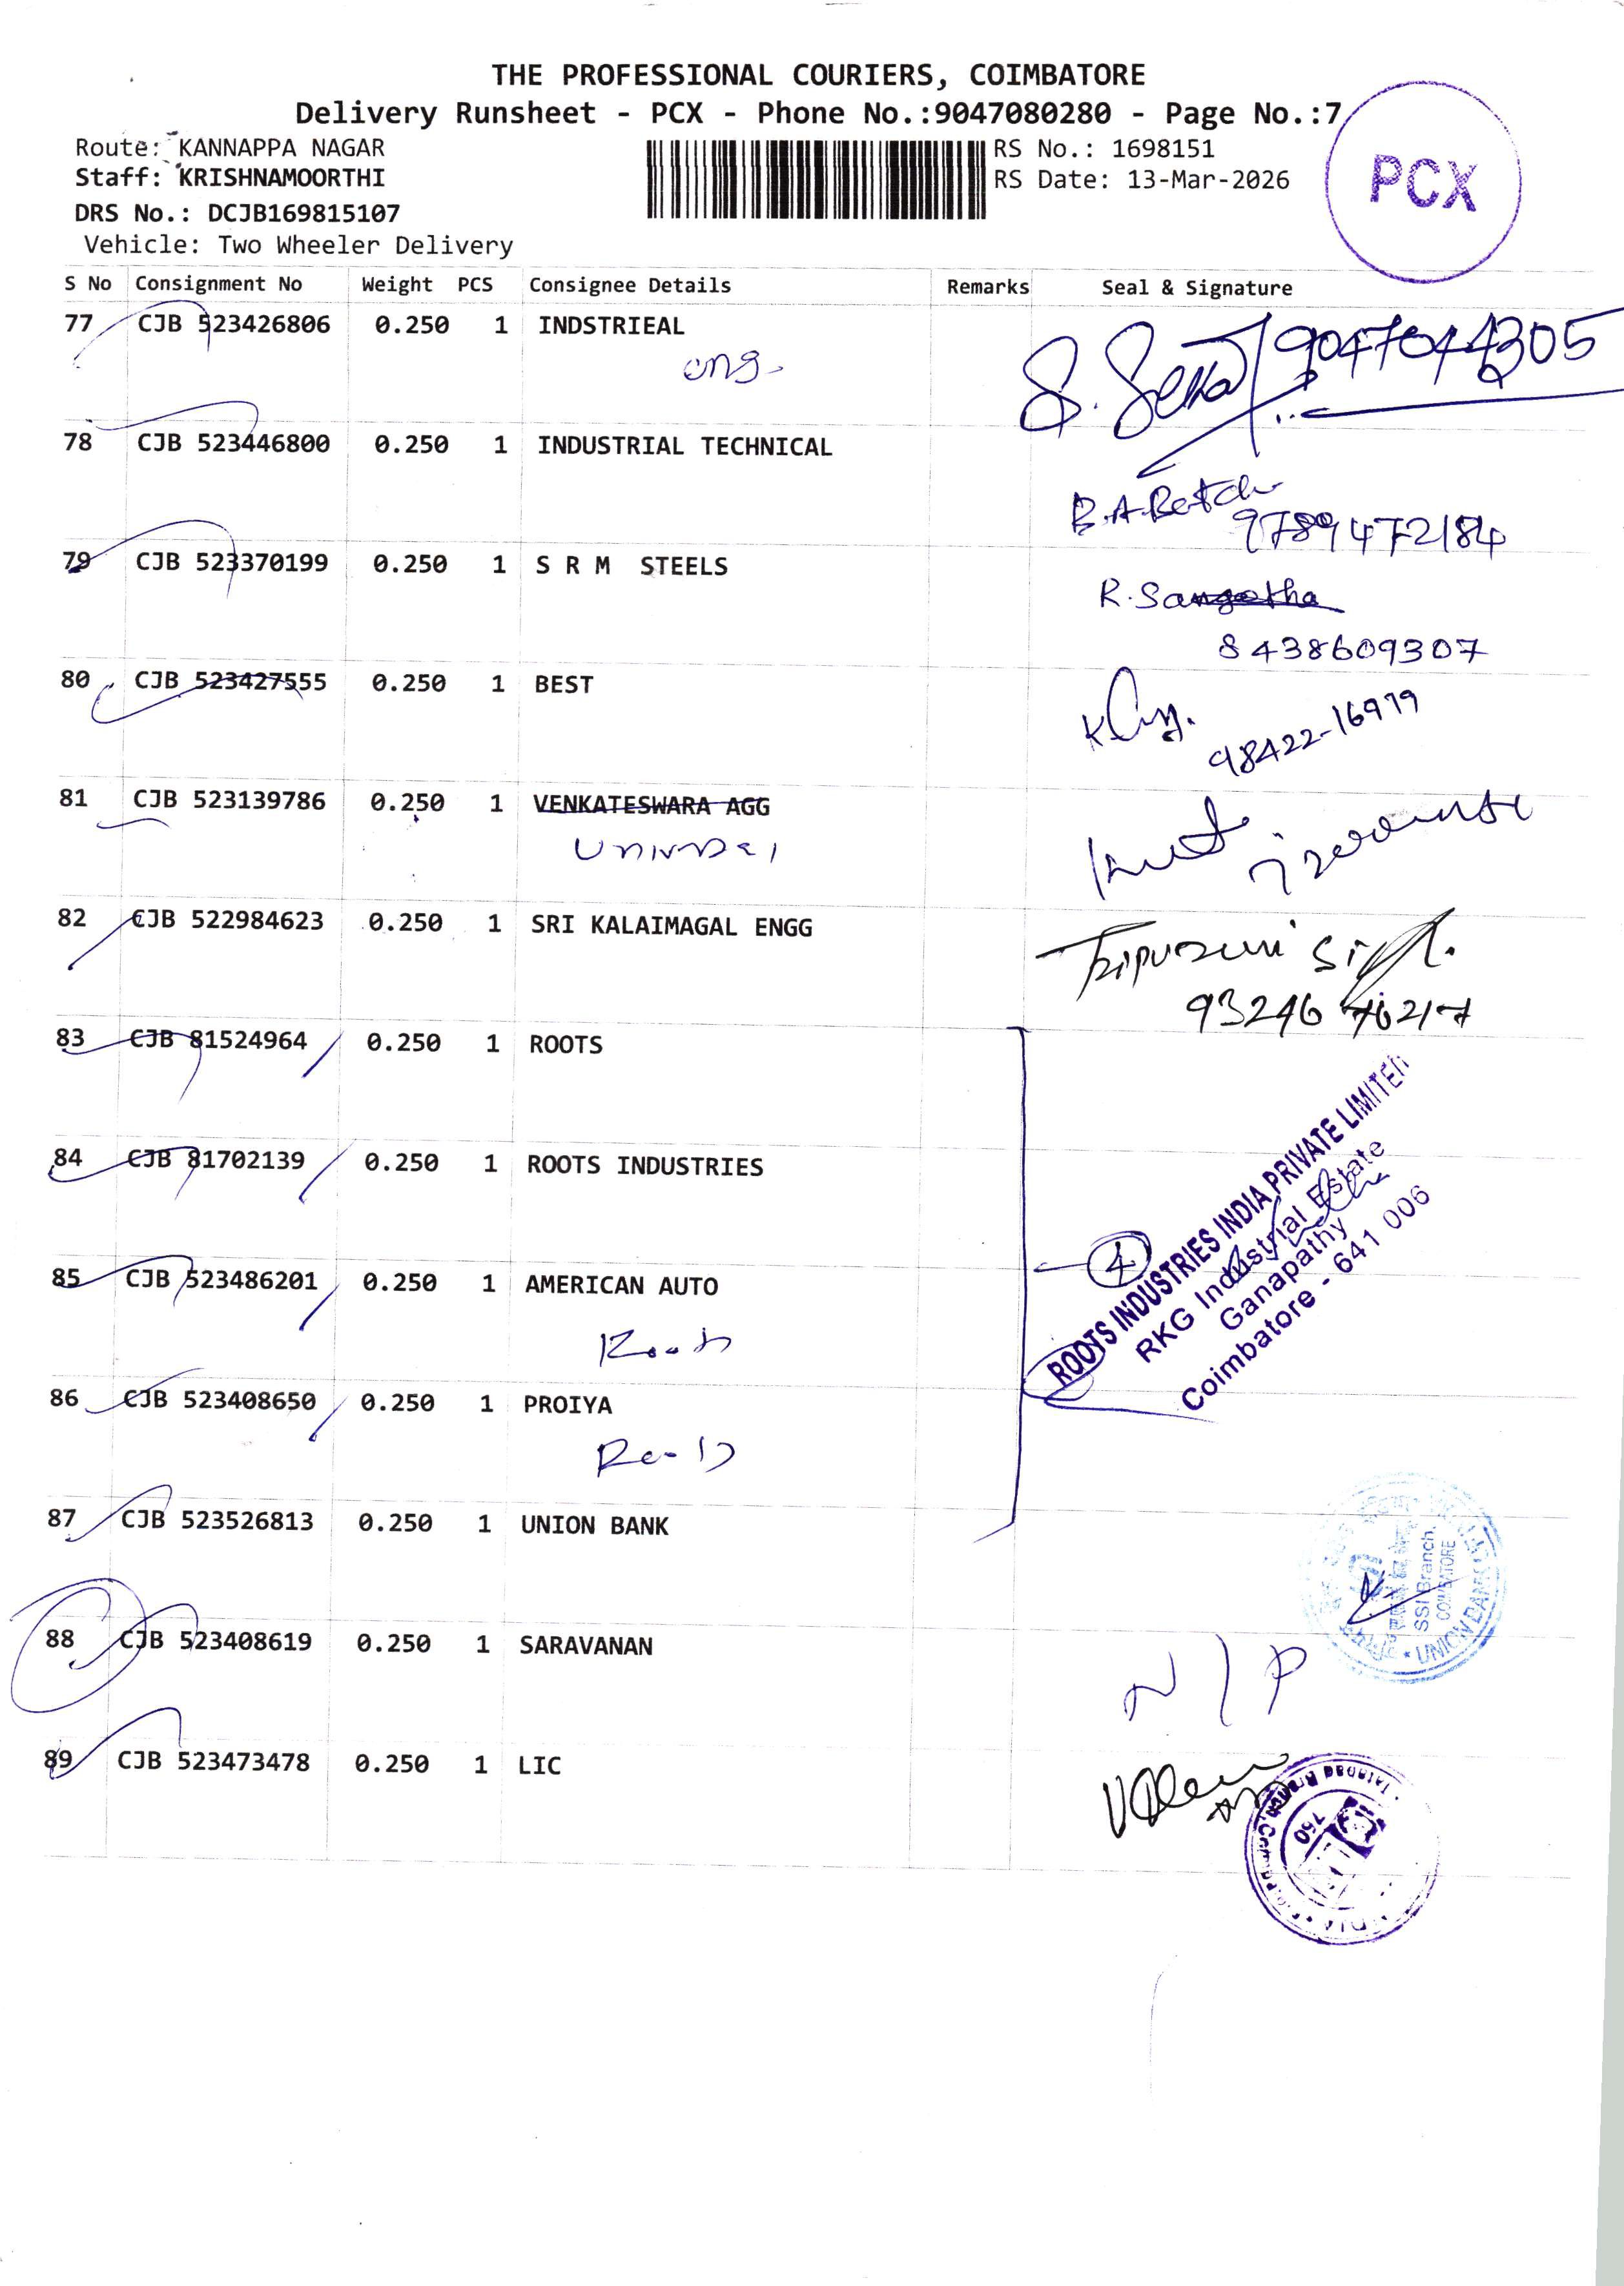 THE PROFESSIONAL COURIERS, COIMBATORE
Delivery Runsheet - PCX - Phone No.:9047080280 - Page No.:7
Route: KANNAPPA NAGAR
Staff: KRISHNAMOORTHI
DRS No.: DCJB169815107
Vehicle: Two Wheeler Delivery
RS No.: 1698151
RS Date: 13-Mar-2026
PCX
S No Consignment No Weight PCS Consignee Details Remarks Seal & Signature
77 CJB 523426806 0.250 1 INDSTRIEAL
9047044305
78 CJB 523446800 0.250 1 INDUSTRIAL TECHNICAL
9789472184
79 CJB 523370199 0.250 1 S R M STEELS
R. Sangetha
8438609307
80 CJB 523427555 0.250 1 BEST
98422-16979
81 CJB 523139786 0.250 1 VENKATESWARA AGG
82 CJB 522984623 0.250 1 SRI KALAIMAGAL ENGG
83 CJB 81524964 0.250 1 ROOTS
84 CJB 81702139 0.250 1 ROOTS INDUSTRIES
4
ROOTS INDUSTRIES INDIA PRIVATE LIMITED
RKG Industrial Estate
Ganapathy
Coimbatore - 641 006
85 CJB 523486201 0.250 1 AMERICAN AUTO
Roots
86 CJB 523408650 0.250 1 PROIYA
87 CJB 523526813 0.250 1 UNION BANK
SSI Branch,
COIMBATORE
UNION BANK
88 CJB 523408619 0.250 1 SARAVANAN
N/P
89 CJB 523473478 0.250 1 LIC
760